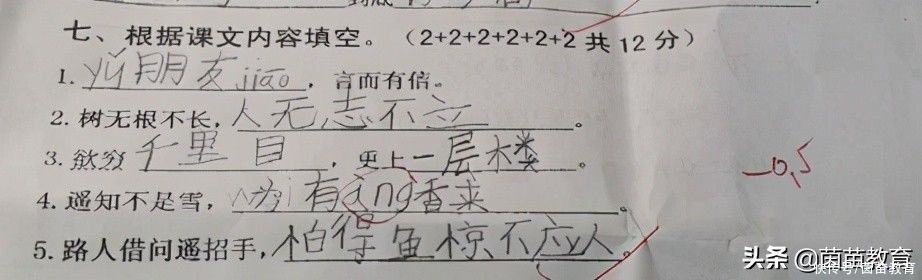 七、根据课文内容填空。（2+2+2+2+2+2 共 12 分）
1. yǔ朋友jiāo，言而有信。
2. 树无根不长，人无志不立。
3. 欲穷千里目，更上一层楼。
-0.5
4. 遥知不是雪，wèi有àng香来。
5. 路人借问遥招手，怕得鱼惊不应人。
头条 @茵茵教育
快传号/茵茵教育